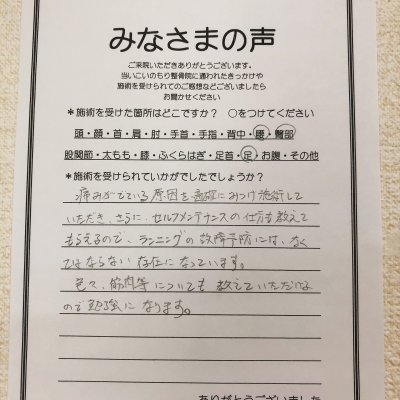 みなさまの声
ご来院いただきありがとうございます。
当いこいのもり整骨院に通われたきっかけや
施術を受けられてのご感想などございましたら
お聞かせください
＊施術を受けた箇所はどこですか？　○をつけてください
頭・顔・首・肩・肘・手首・手指・背中・腰・臀部
股関節・太もも・膝・ふくらはぎ・足首・足・お腹・その他
＊施術を受けられていかがでしたでしょうか？
痛みがでている原因を適確にみつけ施術して
いただき、さらに、セルフメンテナンスの仕方も教えて
もらえるので、ランニングの故障予防には、なく
てはならない存在になっています。
色々、筋肉等についても教えていただける
ので勉強になります。
ありがとうございました